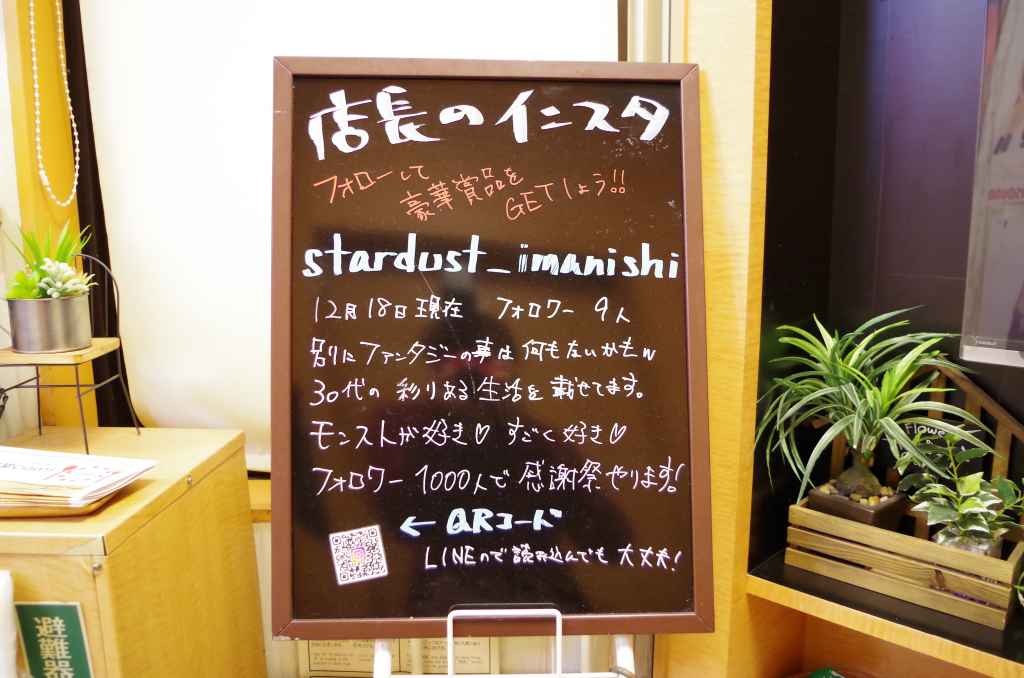 店長のインスタ
フォローして
豪華賞品を
GETしよう!!
stardust_imanishi
12月18日現在 フォロワー 9人
別にファンタジーの事は何もないかもw
30代の彩りある生活を載せてます。
モンストが好き♡ すごく好き♡
フォロワー1000人で感謝祭やります!
← QRコード
LINEので読み込んでも大丈夫!
避難器
Flower